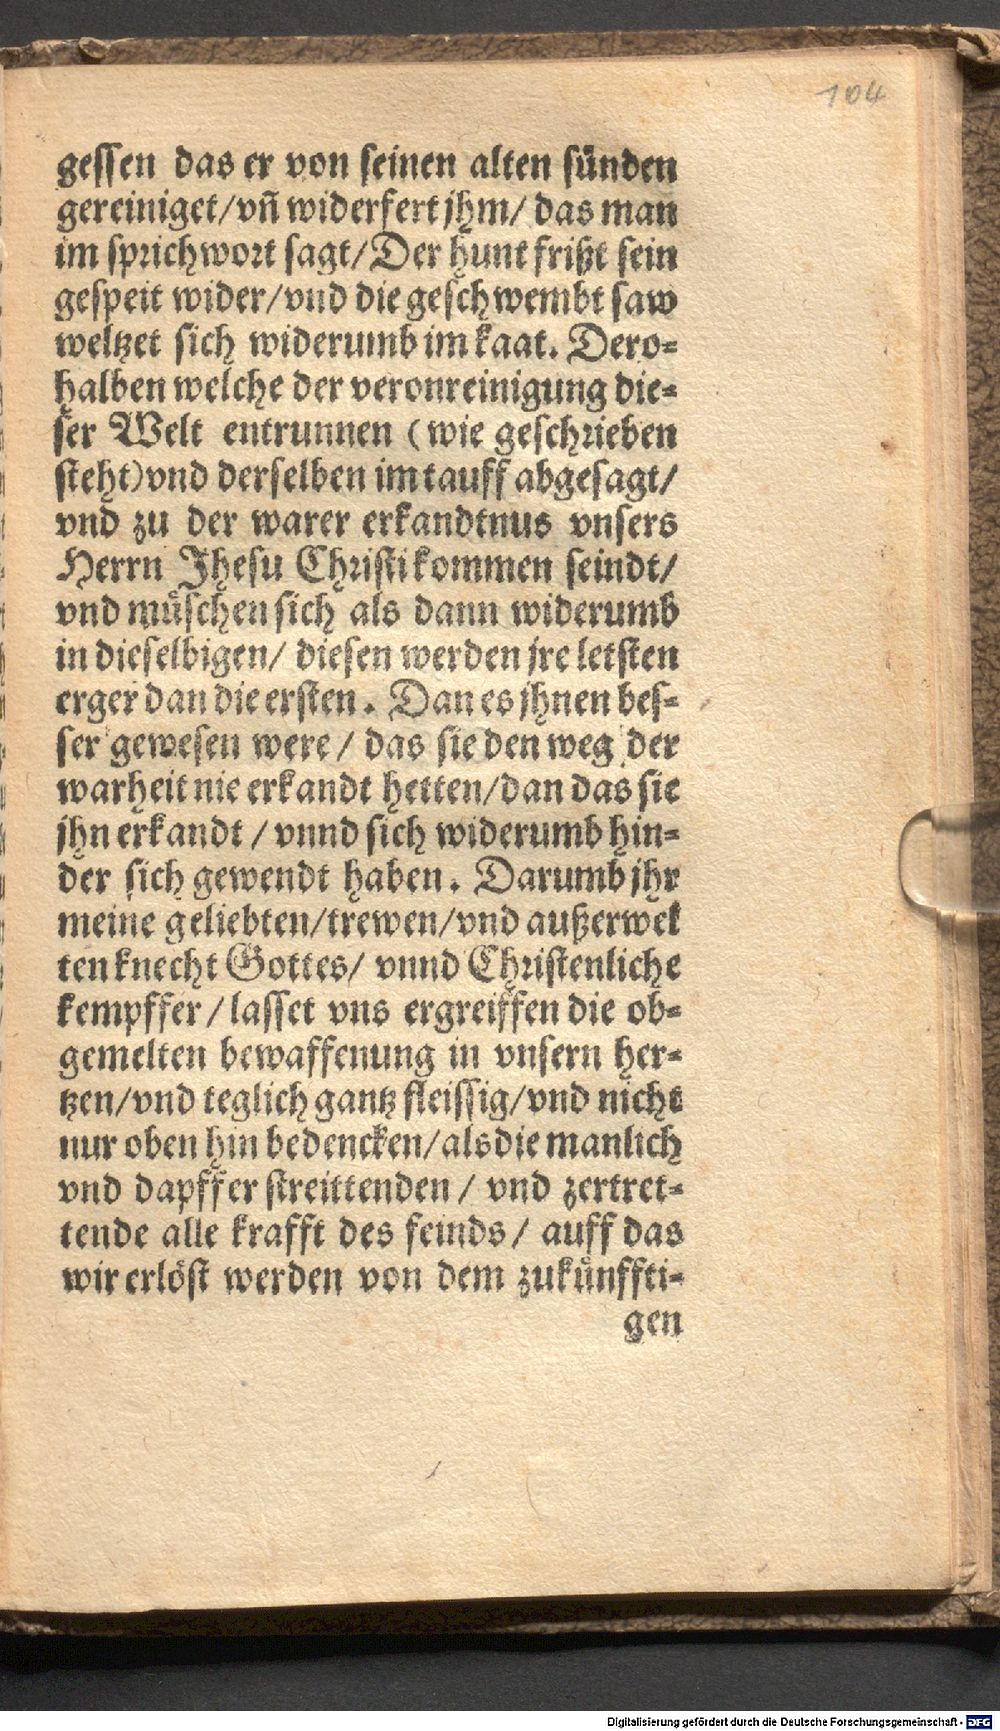 104
gessen das er von seinen alten sünden
gereiniget/vñ widerfert jhm/ das man
im sprichwort sagt/ Der hunt frißt sein
gespeit wider/vnd die geschwembt saw
weltzet sich widerumb im kaat. Dero-
halben welche der veronreinigung die-
ser Welt entrunnen (wie geschrieben
steht) vnd derselben im tauff abgesagt/
vnd zu der warer erkandtnus vnsers
Herrn Jhesu Christi kommen seindt/
vnd müschen sich als dann widerumb
in dieselbigen/ diesen werden jre letsten
erger dan die ersten. Dan es jhnen bes-
ser gewesen were/ das sie den weg der
warheit nie erkandt hetten/dan das sie
jhn erkandt/ vnnd sich widerumb hin-
der sich gewendt haben. Darumb jhr
meine geliebten/trewen/vnd außerwel
ten knecht Gottes/ vnnd Christenliche
kempffer/ lasset vns ergreiffen die ob-
gemelten bewaffenung in vnsern her-
tzen/vnd teglich gantz fleissig/vnd nicht
nur oben hin bedencken/als die manlich
vnd dapffer streittenden/ vnd zertret-
tende alle krafft des feinds/ auff das
wir erlöst werden von dem zukünffti-
gen
Digitalisierung gefördert durch die Deutsche Forschungsgemeinschaft - DFG